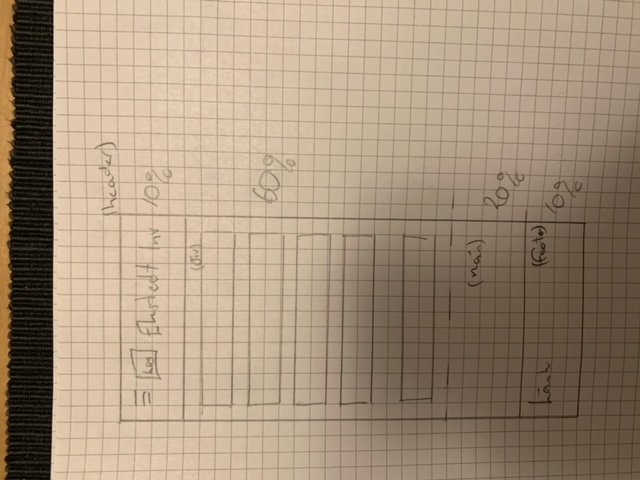 (header)
Log Ekstedt Inr 10%
(div)
60%
(main)
20%
Länk (footer)
10%